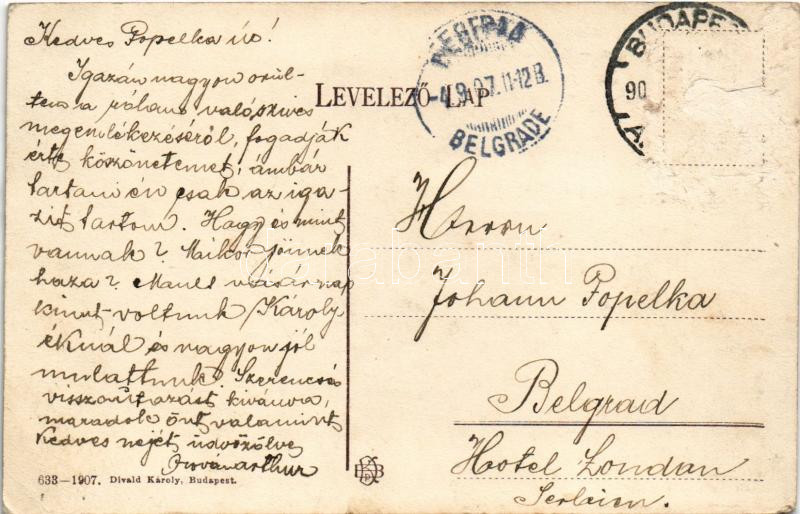 Kedves Popelka úr!
Igazán nagyon örül-
tem a rólam való szives
megemlékezéséről, fogadják
érte köszönetemet, ámbár
tartani én csak az iga-
zit tartom. Hagy és mint
vannak? Mikor jönnek
haza? Mult vasárnap
kint voltunk Károly
éknál és nagyon jól
mulattunk. Szerencsés
visszautazást kivánva,
maradok önt valamint
kedves nejét üdvözölve
LEVELEZŐ-LAP
БЕОГРАД
-4.9.07.11-12В.
BELGRADE
BUDAPE
90
Herrn
Johann Popelka
Belgrad
Hotel London
Serbien.
633-1907. Divald Károly, Budapest.
darabanth